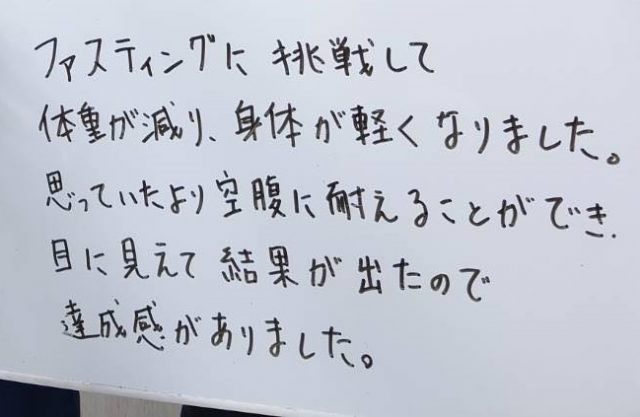 ファスティングに挑戦して
体重が減り、身体が軽くなりました。
思っていたより空腹に耐えることができ、
目に見えて結果が出たので
達成感がありました。